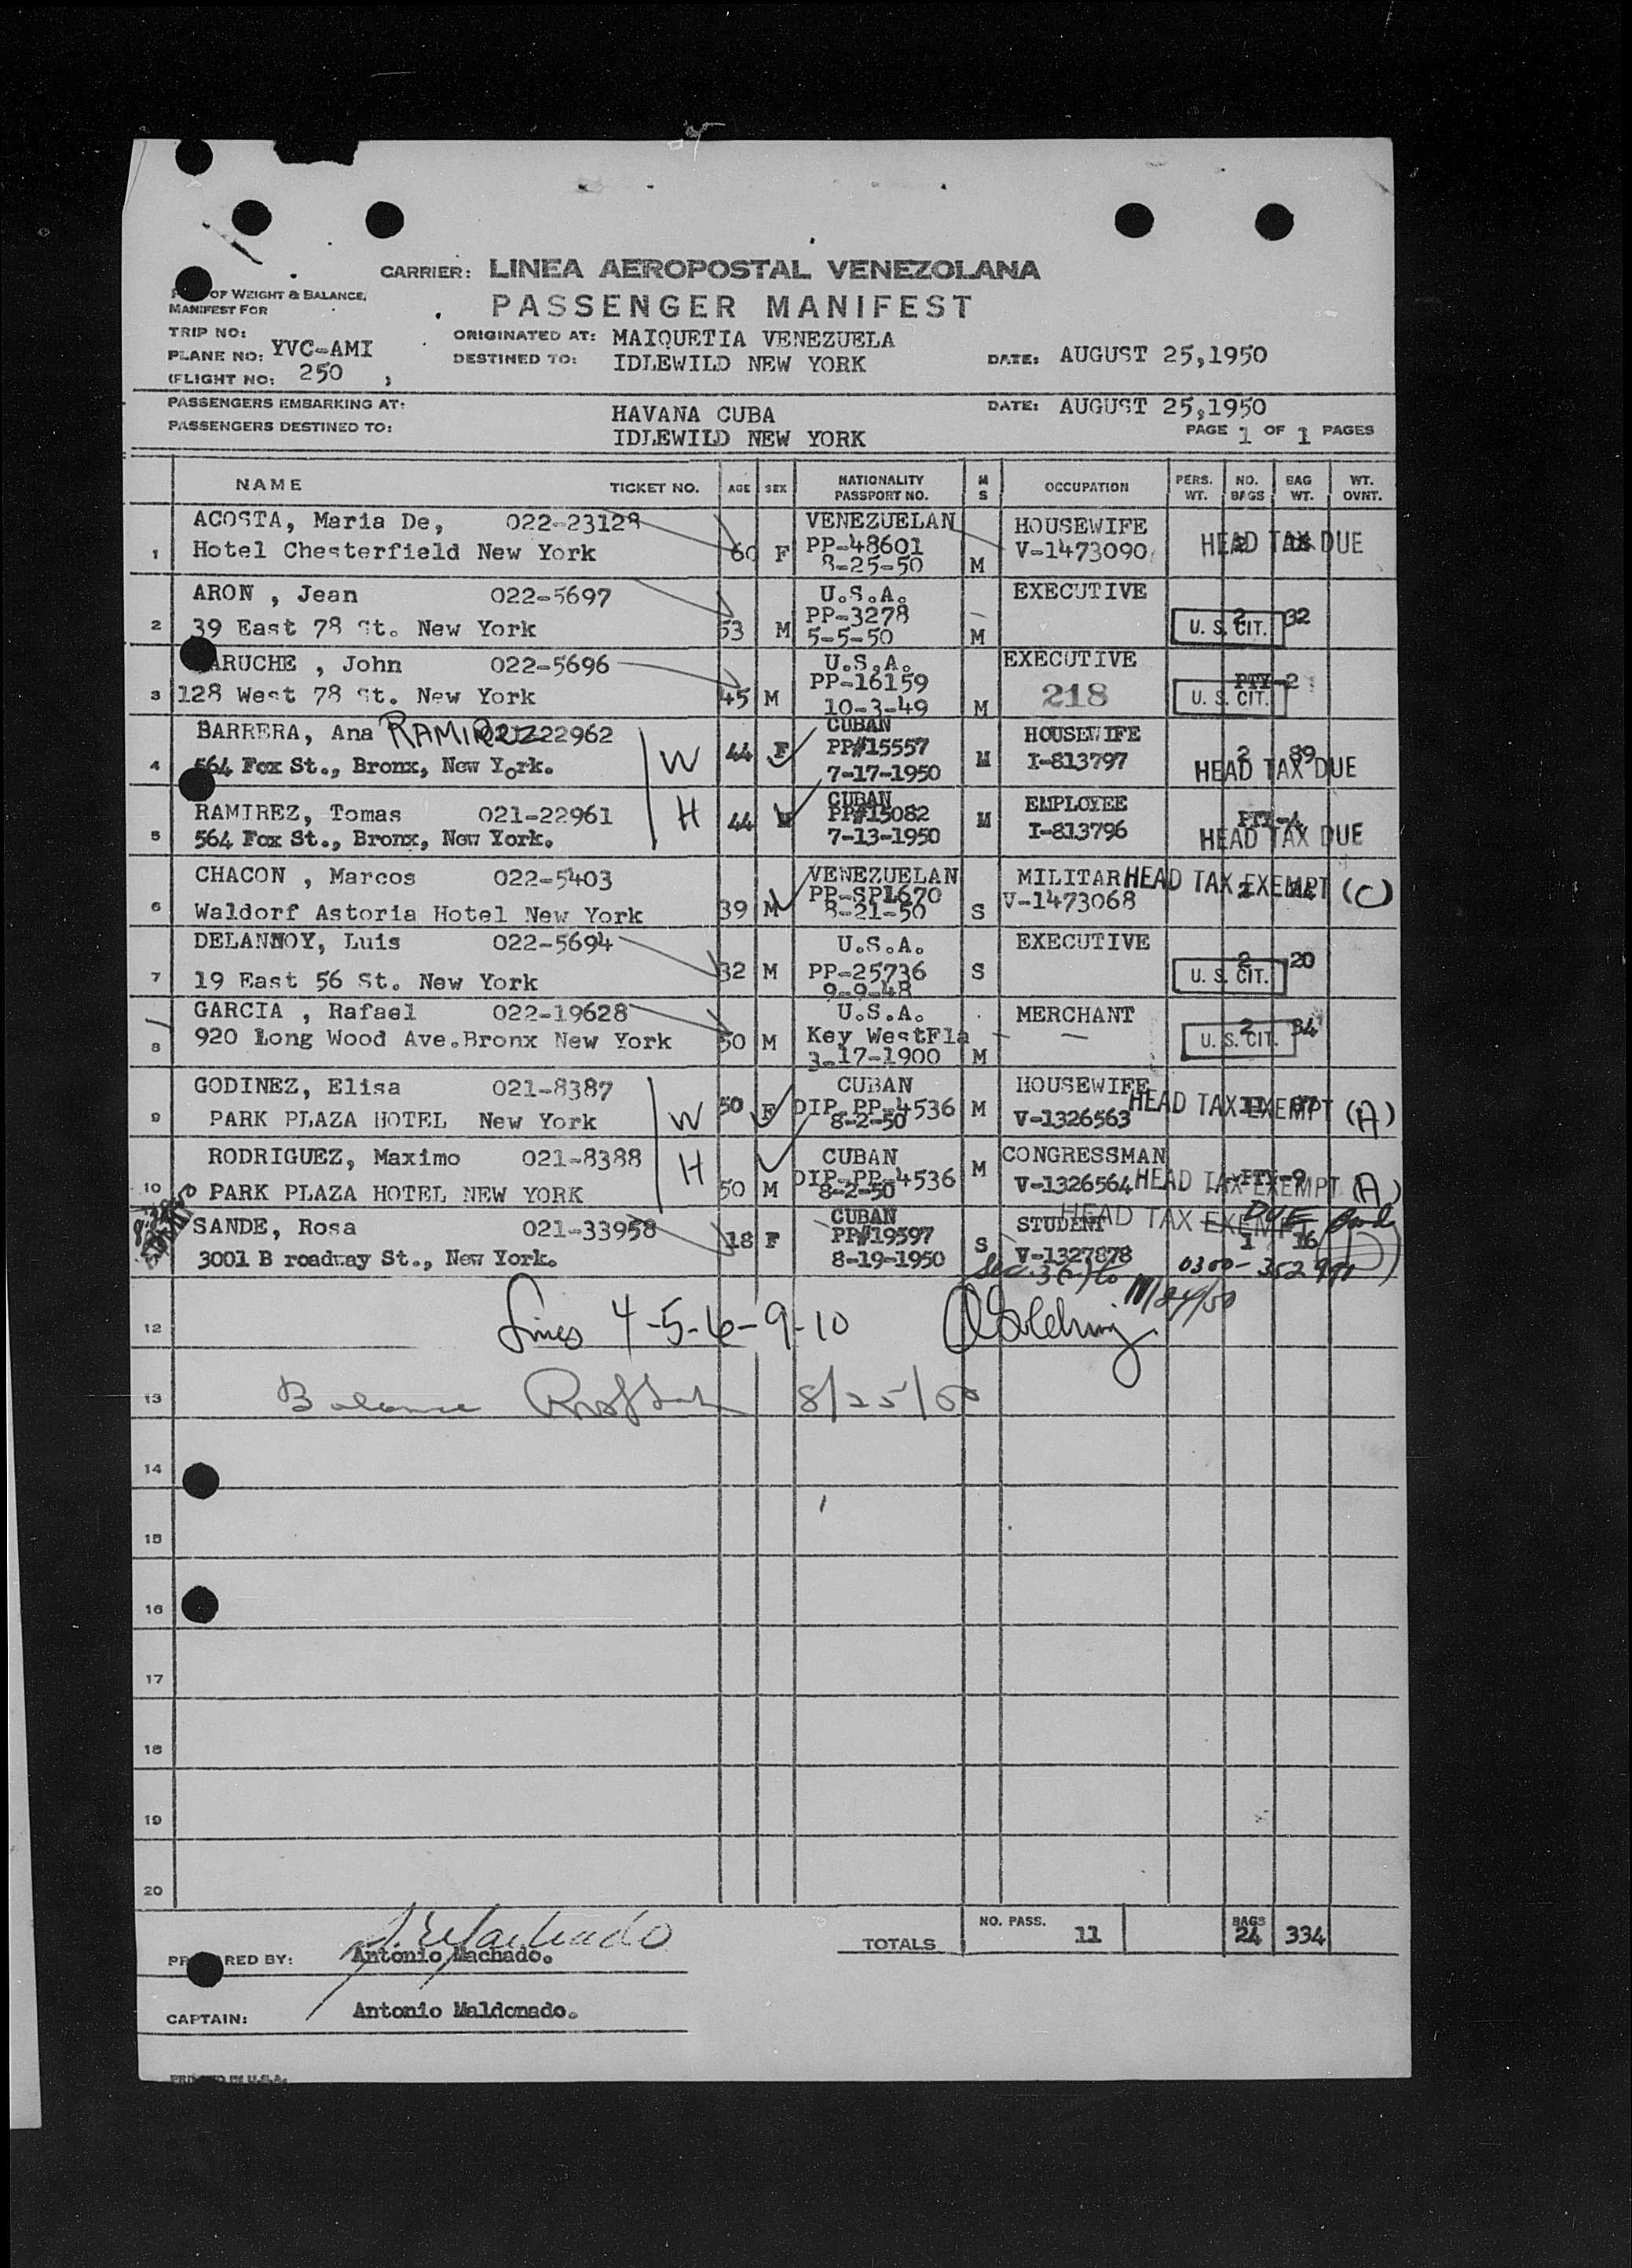 CARRIER: LINEA AEROPOSTAL VENEZOLANA
OF WEIGHT & BALANCE,
MANIFEST FOR
PASSENGER MANIFEST
TRIP NO:
ORIGINATED AT: MAIQUETIA VENEZUELA
PLANE NO: YVC-AMI
DESTINED TO: IDLEWILD NEW YORK
DATE: AUGUST 25,1950
(FLIGHT NO: 250 )
PASSENGERS EMBARKING AT: HAVANA CUBA
DATE: AUGUST 25,1950
PASSENGERS DESTINED TO: IDLEWILD NEW YORK
PAGE 1 OF 1 PAGES
NAME TICKET NO. AGE SEX NATIONALITY PASSPORT NO. M S OCCUPATION PERS. WT. NO. BAGS BAG WT. WT. OVNT.
ACOSTA, Maria De, 022-23128 VENEZUELAN HOUSEWIFE
1 Hotel Chesterfield New York 60 F PP-48601 V-1473090 HEAD TAX DUE
8-25-50 M
ARON , Jean 022-5697 U.S.A. EXECUTIVE
PP-3278 2 32
2 39 East 78 St. New York 53 M 5-5-50 M U. S. CIT.
ARUCHE , John 022-5696 U.S.A. EXECUTIVE
PP-16159 PTY-2
3 128 West 78 St. New York 45 M 10-3-49 M 218 U. S. CIT.
BARRERA, Ana RAMIREZ 22962 CUBAN HOUSEWIFE
W 44 F PP#15557 M I-813797 2 89
4 564 Fox St., Bronx, New York. 7-17-1950 HEAD TAX DUE
RAMIREZ, Tomas 021-22961 H 44 CUBAN M EMPLOYEE
PP#15082 PTY-4
5 564 Fox St., Bronx, New York. 7-13-1950 I-813796 HEAD TAX DUE
CHACON , Marcos 022-5403 VENEZUELAN MILITAR HEAD TAX EXEMPT (C)
PP-SP1670 V-1473068
6 Waldorf Astoria Hotel New York 39 M 8-21-50 S
DELANNOY, Luis 022-5694 U.S.A. EXECUTIVE
2 20
7 19 East 56 St. New York 32 M PP-25736 S U. S. CIT.
9-9-48
GARCIA , Rafael 022-19628 U.S.A. MERCHANT
2 34
8 920 Long Wood Ave.Bronx New York 50 M Key WestFla U. S. CIT.
3-17-1900 M
GODINEZ, Elisa 021-8387 CUBAN HOUSEWIFE
W 50 F DIP-PP-4536 M HEAD TAX EXEMPT (A)
9 PARK PLAZA HOTEL New York 8-2-50 V-1326563
RODRIGUEZ, Maximo 021-8388 H CUBAN M CONGRESSMAN
DIP-PP-4536 PTY-9
10 PARK PLAZA HOTEL NEW YORK 50 M 8-2-50 V-1326564 HEAD TAX EXEMPT (A)
SANDE, Rosa 021-33958 CUBAN STUDENT HEAD TAX EXEMPT DUE
18 F PP#19597 S 1 16
3001 B roadway St., New York. 8-19-1950 V-1327878
Sec. 3(2) to 11/24/50
12 Lines 4-5-6-9-10
13 Balance 8/25/50
14
15
16
17
18
19
20
NO. PASS. 11 BAGS 24 334
TOTALS
PREPARED BY: Antonio Machado.
CAPTAIN: Antonio Maldonado.
PRINTED IN U.S.A.